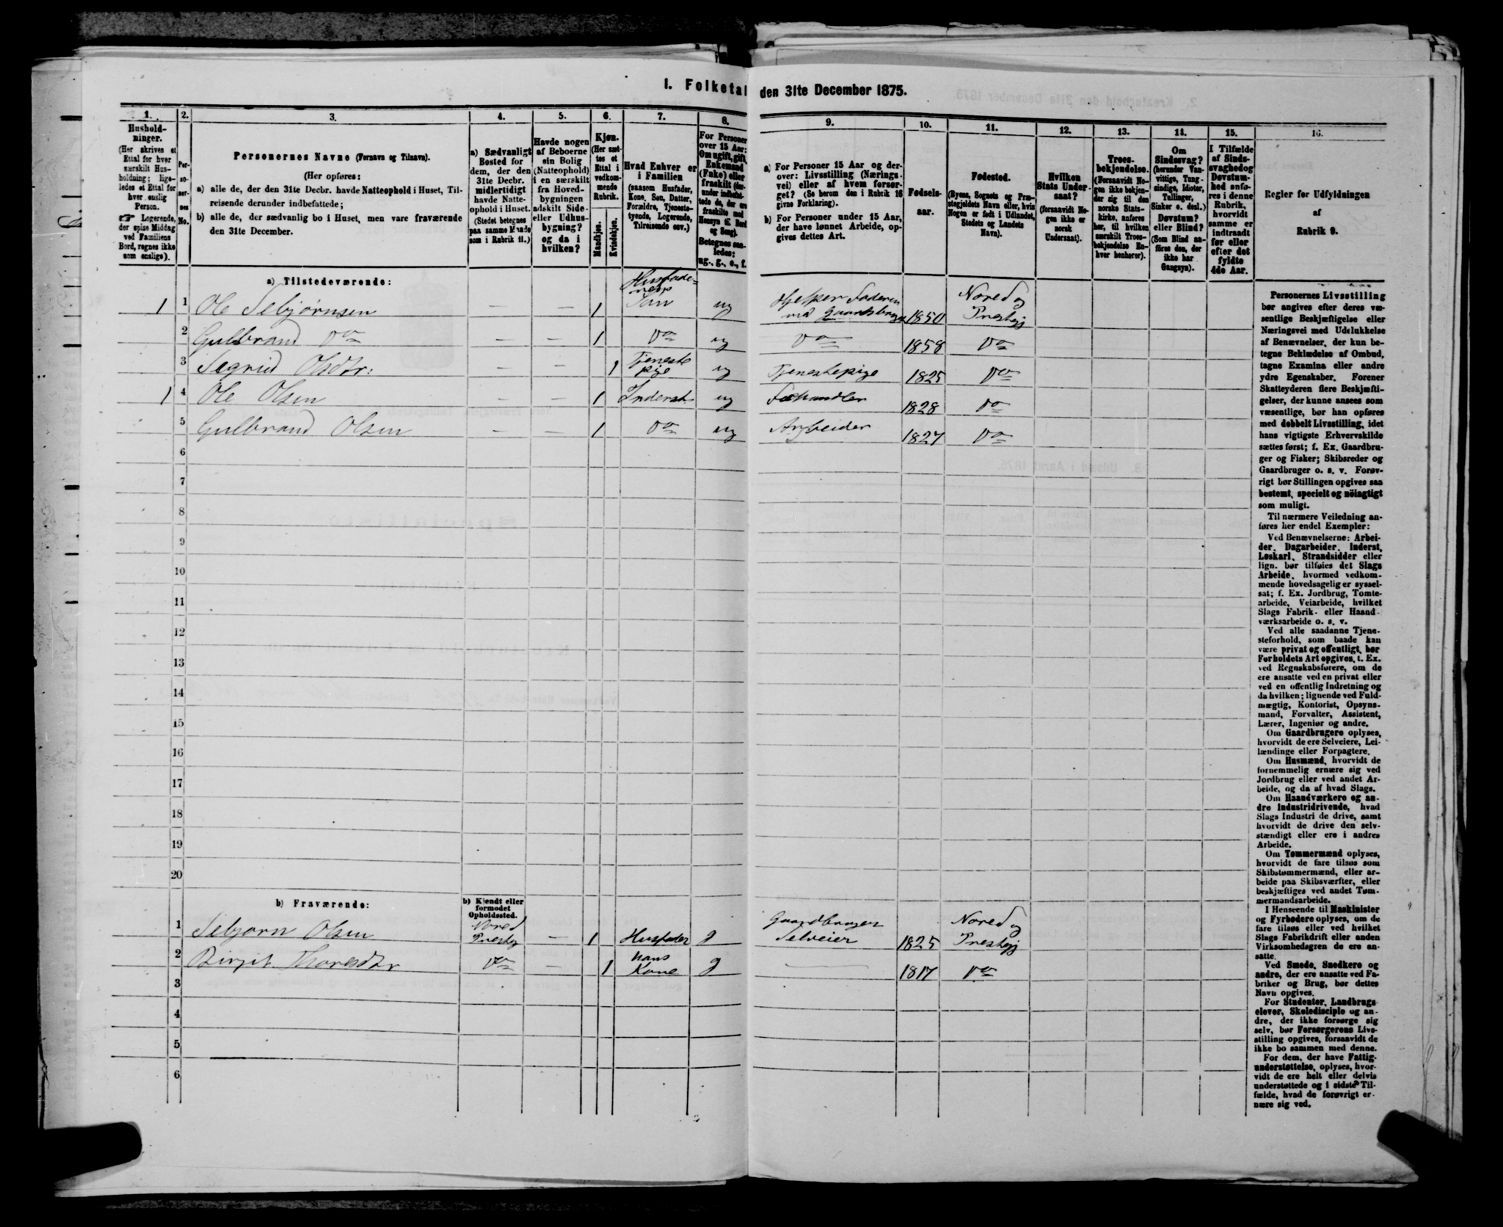 I. Folketal den 31te December 1875.
1. 2. 3. 4. 5. 6. 7. 8. 9. 10. 11. 12. 13. 14. 15. 16.
Hushold-
ninger.
(Her skrives et
Ettal for hver
særskilt Hus-
holdning; lige-
ledes et Ettal for
hver enslig
Person.
Logerende,
der spise Middag
ved Familiens
Bord, regnes ikke
som enslige).
Per-
so-
ner-
nes
No.
Personernes Navne (Fornavn og Tilnavn).
(Her opføres:
a) alle de, der den 31te Decbr. havde Natteophold i Huset, Til-
reisende derunder indbefattede;
b) alle de, der sædvanlig bo i Huset, men vare fraværende
den 31te December.
a) Sædvanligt
Bosted for
dem, der den
31te Decbr.
midlertidigt
havde Natte-
ophold i Huset.
(Stedet betegnes
paa samme Maade
som i Rubrik 11.)
Havde nogen
af Beboerne
sin Bolig
(Natteophold)
i en særskilt
fra Hoved-
bygningen
adskilt Side-
eller Udhus-
bygning?
og da i
hvilken?
Kjøn.
(Her sæt-
tes et
Ettal i
vedkom-
mende
Rubrik.
Mandkjøn.
Kvindekjøn.
Hvad Enhver er
i Familien
(saasom Husfader,
Kone, Søn, Datter,
Forældre, Tjeneste-
tyende, Logerende,
Tilreisende osv.)
For Personer
over 15 Aar:
Om ugift, gift,
Enkemand
(Enke) eller
fraskilt
Betegnes saa-
ledes:
ug., g., e., f.
a) For Personer 15 Aar og der-
over: Livsstilling (Nærings-
vei) eller af hvem forsør-
get? (Se herom den i Rubrik 16
givne Forklaring).
b) For Personer under 15 Aar,
der have lønnet Arbeide, op-
gives dettes Art.
Fødsels-
aar.
Fødested.
(Byens, Sognets og Præ-
stegjeldets Navn eller, hvis
Nogen er født i Udlandet,
Stedets og Landets
Navn).
Hvilken
Stats Under-
saat?
(forsaavidt No-
gen ikke er
norsk
Undersaat).
Troes-
bekjendelse.
(Forsaavidt No-
gen ikke bekjen-
der sig til den
norske Stats-
kirke, anføres
her, til hvilken
særskilt Troes-
bekjendelse En-
hver henhører).
Om
Sindssvag?
(herunder Van-
vittige, Tung-
sindige, Idioter,
Tullinger,
Sinker o. desl.)
Døvstum?
eller Blind?
(Som Blind an-
føres den, der
ikke har
Gangsyn).
I Tilfælde
af Sinds-
svaghed og
Døvstum-
hed anfø-
res i denne
Rubrik,
hvorvidt
samme er
indtraadt
før eller
efter det
fyldte
4de Aar.
Regler for Udfyldningen
af
Rubrik 9.
a) Tilstedeværende:
1 1 Ole Sebjørnsen — — 1 Husfaderens Søn ug Hjelper Faderen med Gaardsbruget 1850 Nored og Prestegj
2 Gulbrand Do — — 1 Do ug Do 1858 Do
3 Segrid Olsdtr: — — 1 Tjenestepige ug Tjenestepige 1825 Do
1 4 Ole Olsen — — 1 Inderst ug Fæhandler 1828 Do
5 Gulbrand Olsen — — 1 Do ug Arbeider 1827 Do
6
7
8
9
10
11
12
13
14
15
16
17
18
19
20
b) Fraværende:
b) Kjendt eller
formodet
Opholdssted.
1 Sebjørn Olsen Nored Prestegj — 1 Husfader g Gaardbruger Selveier 1825 Nored og Prestegj
2 Birgit Thoresdtr Do — 1 hans Kone g — 1817 Do
3
4
5
6
Personernes Livsstilling
bør angives efter deres væ-
sentlige Beskjæftigelse eller
Næringsvei med Udelukkelse
af Benævnelser, der kun be-
tegne Beklædelse af Ombud,
tagne Examina eller andre
ydre Egenskaber. Forener
Skatteyderen flere Beskjæfti-
gelser, der kunne ansees som
væsentlige, bør han opføres
med dobbelt Livsstilling, idet
hans vigtigste Erhvervskilde
sættes først; f. Ex. Gaardbru-
ger og Fisker; Skibsreder og
Gaardbruger o. s. v. Forøv-
rigt bør Stillingen opgives saa
bestemt, specielt og nöiagtigt
som muligt.
Til nærmere Veiledning an-
føres her endel Exempler:
Ved Benævnelserne: Arbei-
der, Dagarbeider, Inderst,
Løskarl, Strandsidder eller
lign. bør tilføies det Slags
Arbeide, hvormed vedkom-
mende hovedsagelig er syssel-
sat; f. Ex. Jordbrug, Tomte-
arbeide, Veiarbeide, hvilket
Slags Fabrik- eller Haand-
værksarbeide o. s. v.
Ved alle saadanne Tjene-
steforhold, som baade kan
være privat og offentligt, bør
Forholdets Art opgives, t. Ex.
ved Regnskabsførere, om de
ere ansatte ved en privat eller
ved en offentlig Indretning og
da hvilken; lignende ved Fuld-
mægtig, Kontorist, Opsyns-
mand, Forvalter, Assistent,
Lærer, Ingeniør og andre.
Om Gaardbrugere oplyses,
hvorvidt de ere Selveiere, Lei-
lændinge eller Forpagtere.
Om Husmænd, hvorvidt de
fornemmelig ernære sig ved
Jordbrug eller ved andet Ar-
beide, og da af hvad Slags.
Om Haandværkere og an-
dre Industridrivende, hvad
Slags Industri de drive, samt
hvorvidt de drive den selv-
stændigt eller ere i andres
Arbeide.
Om Tømmermænd oplyses,
hvorvidt de fare tilsøs som
Skibstømmermænd, eller ar-
beide paa Skibsværfter, eller
beskjæftiges ved andet Tøm-
mermandsarbeide.
I Henseende til Maskinister
og Fyrbødere oplyses, om de
fare tilsøs eller ved hvilket
Slags Fabrikdrift eller anden
Virksomhedsgren de ere an-
satte.
Ved Smede, Snedkere og
andre, der ere ansatte ved Fa-
briker og Brug, bør dettes
Navn opgives.
For Studenter, Landbrugs-
elever, Skoledisciple og an-
dre, der ikke forsørge sig
selv, bør Forsørgerens Livs-
stilling opgives, forsaavidt de
ikke bo sammen med denne.
For dem, der have Fattig-
understøttelse, oplyses, hvor-
vidt de ere helt eller delvis
understøttede og i sidste Til-
fælde, hvad de forøvrigt er-
nære sig ved.